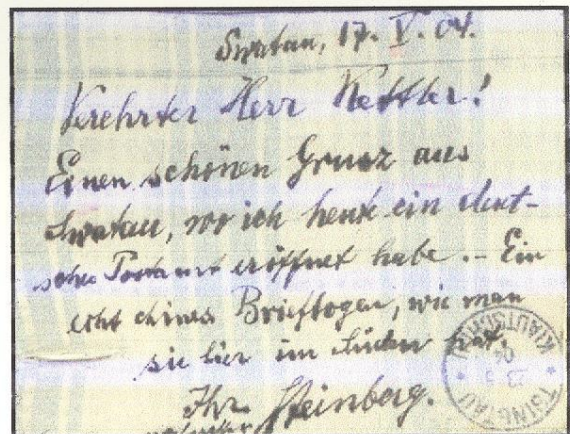 Swatau, 17. V. 04.
Verehrter Herr Kettler!
Einen schönen Grusz aus
Swatau, wo ich heute ein deut-
sches Postamt eröffnet habe. - Ein
echt chines. Briefbogen, wie man
sie hier im Süden hat.
Ihr
Steinberg.
TSINGTAU
KIAUTSCHOU